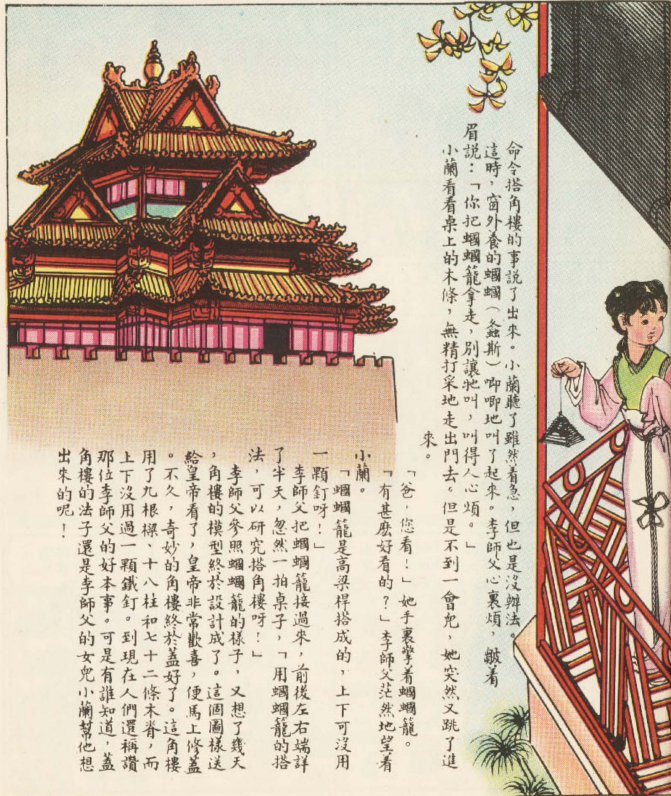 命令搭角樓的事説了出來。小蘭聽了雖然着急，但也是沒辦法。
這時，窗外養的蟈蟈（螽斯）唧唧地叫了起來。李師父心裏煩，皺着
眉説：「你把蟈蟈籠拿走，別讓牠叫，叫得人心煩。」
小蘭看看桌上的木條，無精打采地走出門去。但是不到一會兒，她突然又跳了進
來。
「爸，您看！」她手裏擎着蟈蟈籠。
「有甚麽好看的？」李師父茫然地望着
小蘭。
「蟈蟈籠是高梁桿搭成的，上下可沒用
一顆釘呀！」
李師父把蟈蟈籠接過來，前後左右端詳
了半天，忽然一拍桌子，「用蟈蟈籠的搭
法，可以研究搭角樓呀！」
李師父參照蟈蟈籠的樣子，又想了幾天
，角樓的模型終於設計成了。這個圖樣送
給皇帝看了，皇帝非常歡喜，便馬上修蓋
。不久，奇妙的角樓終於蓋好了。這角樓
用了九根樑、十八柱和七十二條木脊，而
上下沒用過一顆鐵釘。到現在人們還稱讚
那位李師父的好本事。可是有誰知道，蓋
角樓的法子還是李師父的女兒小蘭幫他想
出來的呢！